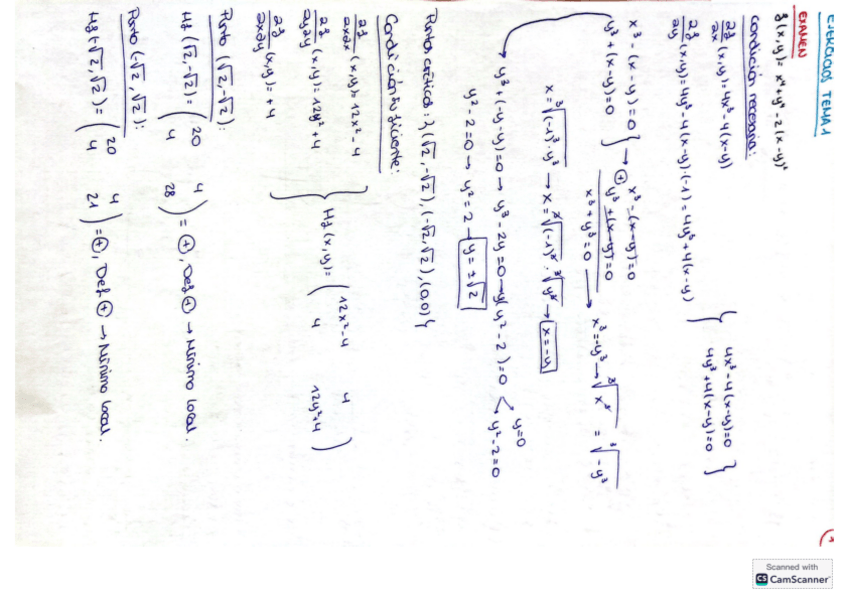 EJERCICIOS TEMA 1
EXAMEN
f(x,y) = x⁴+y⁴-2(x-y)²
Condición necesaria:
∂f/∂x (x,y) = 4x³-4(x-y)
∂f/∂y (x,y) = 4y³-4(x-y)·(-1) = 4y³+4(x-y)
} 4x³-4(x-y)=0
4y³+4(x-y)=0 }
x³-(x-y)=0
y³+(x-y)=0 } → ⊕ x³-(x-y)=0
y³+(x-y)=0
x³+y³=0 → x³=-y³ → ³√x³ = ³√-y³
x = ³√(-1)³·y³ → x = ³√(-1)³ · ³√y³ → x=-y
y³+(-y-y)=0 → y³-2y=0 → y(y²-2)=0 < y=0
y²-2=0
y²-2=0 → y²=2 → y=±√2
Puntos críticos: } (√2,-√2), (-√2,√2), (0,0) {
Condición suficiente:
∂f/∂x∂x (x,y) = 12x²-4
∂f/∂y∂y (x,y) = 12y²+4
∂f/∂x∂y (x,y) = +4
} Hf(x,y) = ( 12x²-4 4
4 12y²+4 )
Punto (√2,-√2):
Hf(√2,-√2) = ( 20 4
4 28 ) = ⊕, Def ⊕ → Mínimo local.
Punto (-√2,√2):
Hf(-√2,√2) = ( 20 4
4 21 ) = ⊕, Def ⊕ → Mínimo local.
Scanned with
CS CamScanner